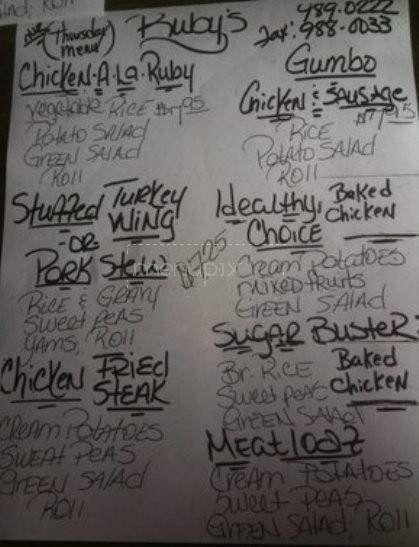 (Thursday menu)
Ruby's
489-0222
Fax: 988-0033
Chicken-A-La-Ruby
Vegetable Rice
Potato Salad
Green Salad
Roll
Stuffed Turkey Wing
-OR-
Pork Steak
Rice & Gravy
Sweet Peas
Yams, Roll
$7.25
Chicken Fried Steak
Cream Potatoes
Sweat Peas
Green Salad
Roll
Gumbo
Chicken & Sausage
$7.95
Rice
Potato Salad
Roll
Healthy Choice
Baked Chicken
Cream Potatoes
mixed fruits
Green Salad
Sugar Buster
Baked Chicken
Br. Rice
Sweet Peas
Green Salad
Meatloaf
Cream Potatoes
Sweet Peas
Green Salad, Roll
menupix